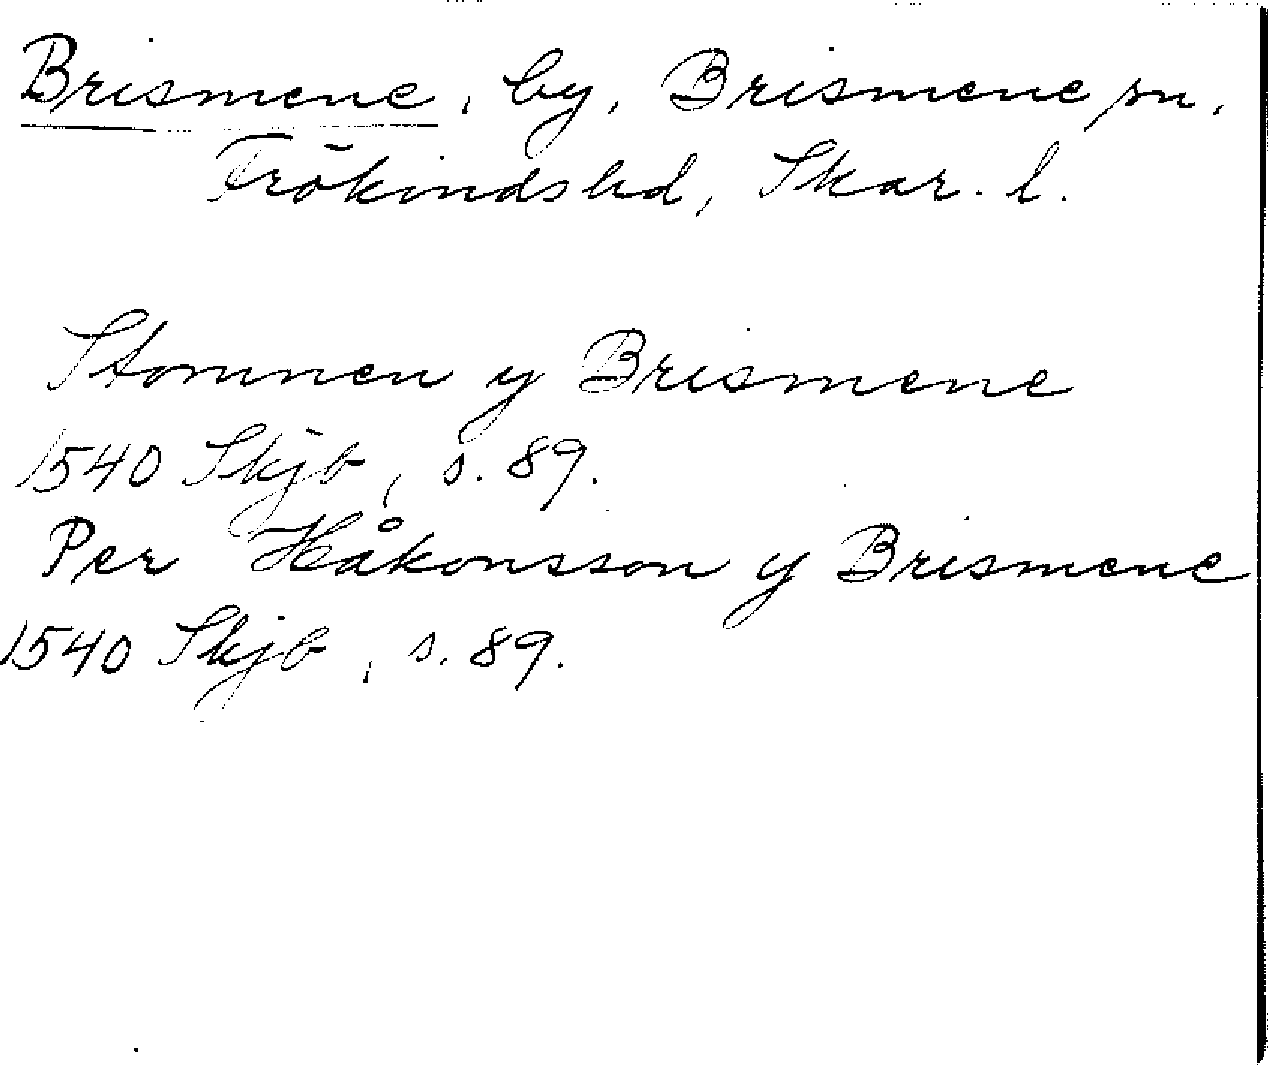 Brismene, by, Brismene sn,
Frökinds hd, Skar. l.
Stommen y Brismene
1540 Skjb, s. 89.
Per Håkonsson y Brismene
1540 Skjb, s. 89.